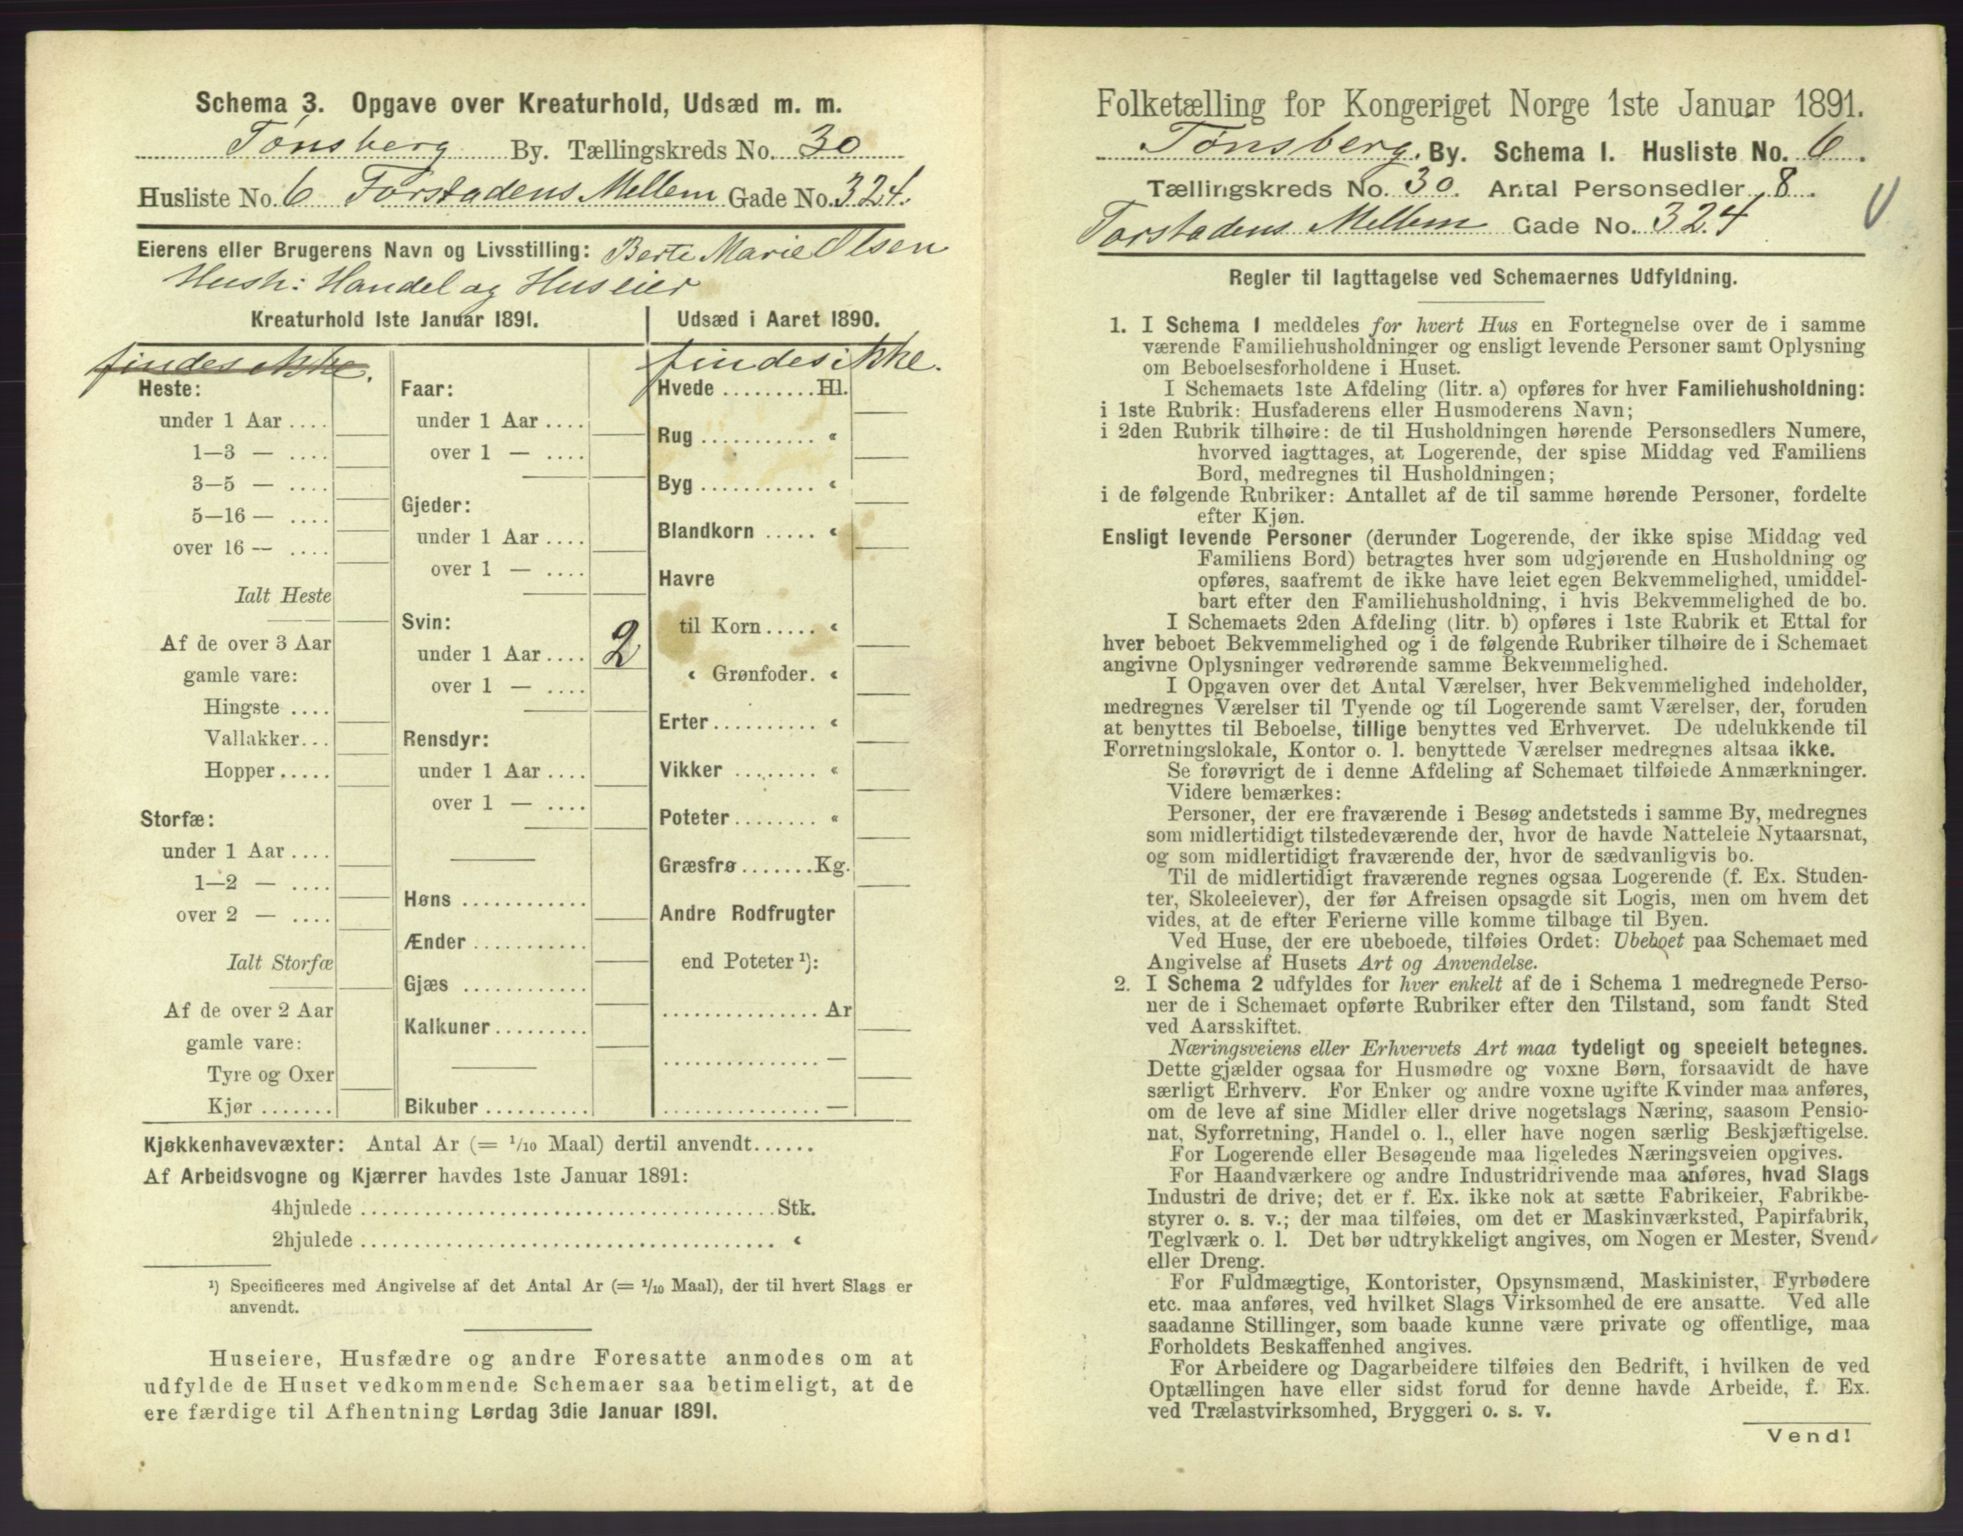 Schema 3. Opgave over Kreaturhold, Udsæd m. m.
Tønsberg By. Tællingskreds No. 30
Husliste No. 6 Forstadens Mellem Gade No. 324.
Eierens eller Brugerens Navn og Livsstilling: Berte Marie Olsen
Hush: Handel og Huseier
Kreaturhold 1ste Januar 1891.
findes ikke.
Heste:
under 1 Aar ....
1—3 — ....
3—5 — ....
5—16 — ....
over 16 — ....
Ialt Heste
Af de over 3 Aar
gamle vare:
Hingste ....
Vallakker...
Hopper.....
Storfæ:
under 1 Aar ....
1—2 — ....
over 2 — ....
Ialt Storfæ
Af de over 2 Aar
gamle vare:
Tyre og Oxer
Kjør .......
Faar:
under 1 Aar ....
over 1 — ....
Gjeder:
under 1 Aar ....
over 1 — ....
Svin:
under 1 Aar .... 2
over 1 — ....
Rensdyr:
under 1 Aar ....
over 1 — ....
Høns ............
Ænder ...........
Gjæs ............
Kalkuner.........
Bikuber ..........
Udsæd i Aaret 1890.
findes ikke.
Hvede .........Hl.
Rug ........... “
Byg ........... “
Blandkorn ..... “
Havre
til Korn..... “
“ Grønfoder. “
Erter.......... “
Vikker ........ “
Poteter........ “
Græsfrø.......Kg.
Andre Rodfrugter
end Poteter ¹):
............... Ar
............... —
............... —
Kjøkkenhavevæxter: Antal Ar (= 1/10 Maal) dertil anvendt......
Af Arbeidsvogne og Kjærrer havdes 1ste Januar 1891:
4hjulede ......................................Stk.
2hjulede ...................................... “
¹) Specificeres med Angivelse af det Antal Ar (= 1/10 Maal), der til hvert Slags er
anvendt.
Huseiere, Husfædre og andre Foresatte anmodes om at
udfylde de Huset vedkommende Schemaer saa betimeligt, at de
ere færdige til Afhentning Lørdag 3die Januar 1891.
Folketælling for Kongeriget Norge 1ste Januar 1891.
Tønsberg. By. Schema I. Husliste No. 6.
Tællingskreds No. 30. Antal Personsedler 8.
Forstadens Mellem Gade No. 324
Regler til Iagttagelse ved Schemaernes Udfyldning.
1. I Schema 1 meddeles for hvert Hus en Fortegnelse over de i samme
værende Familiehusholdninger og ensligt levende Personer samt Oplysning
om Beboelsesforholdene i Huset.
I Schemaets 1ste Afdeling (litr. a) opføres for hver Familiehusholdning:
i 1ste Rubrik: Husfaderens eller Husmoderens Navn;
i 2den Rubrik tilhøire: de til Husholdningen hørende Personsedlers Numere,
hvorved iagttages, at Logerende, der spise Middag ved Familiens
Bord, medregnes til Husholdningen;
i de følgende Rubriker: Antallet af de til samme hørende Personer, fordelte
efter Kjøn.
Ensligt levende Personer (derunder Logerende, der ikke spise Middag ved
Familiens Bord) betragtes hver som udgjørende en Husholdning og
opføres, saafremt de ikke have leiet egen Bekvemmelighed, umiddel-
bart efter den Familiehusholdning, i hvis Bekvemmelighed de bo.
I Schemaets 2den Afdeling (litr. b) opføres i 1ste Rubrik et Ettal for
hver beboet Bekvemmelighed og i de følgende Rubriker tilhøire de i Schemaet
angivne Oplysninger vedrørende samme Bekvemmelighed.
I Opgaven over det Antal Værelser, hver Bekvemmelighed indeholder,
medregnes Værelser til Tyende og til Logerende samt Værelser, der, foruden
at benyttes til Beboelse, tillige benyttes ved Erhvervet. De udelukkende til
Forretningslokale, Kontor o. l. benyttede Værelser medregnes altsaa ikke.
Se forøvrigt de i denne Afdeling af Schemaet tilføiede Anmærkninger.
Videre bemærkes:
Personer, der ere fraværende i Besøg andetsteds i samme By, medregnes
som midlertidigt tilstedeværende der, hvor de havde Natteleie Nytaarsnat,
og som midlertidigt fraværende der, hvor de sædvanligvis bo.
Til de midlertidigt fraværende regnes ogsaa Logerende (f. Ex. Studen-
ter, Skoleelever), der før Afreisen opsagde sit Logis, men om hvem det
vides, at de efter Ferierne ville komme tilbage til Byen.
Ved Huse, der ere ubeboede, tilføies Ordet: Ubeboet paa Schemaet med
Angivelse af Husets Art og Anvendelse.
2. I Schema 2 udfyldes for hver enkelt af de i Schema 1 medregnede Perso-
ner de i Schemaet opførte Rubriker efter den Tilstand, som fandt Sted
ved Aarsskiftet.
Næringsveiens eller Erhvervets Art maa tydeligt og specielt betegnes.
Dette gjælder ogsaa for Husmødre og voxne Børn, forsaavidt de have
særligt Erhverv. For Enker og andre voxne ugifte Kvinder maa anføres,
om de leve af sine Midler eller drive nogetslags Næring, saasom Pensio-
nat, Syforretning, Handel o. l., eller have nogen særlig Beskjæftigelse.
For Logerende eller Besøgende maa ligeledes Næringsveien opgives.
For Haandværkere og andre Industridrivende maa anføres, hvad Slags
Industri de drive; det er f. Ex. ikke nok at sætte Fabrikeier, Fabrikbe-
styrer o. s. v.; der maa tilføies, om det er Maskinværksted, Papirfabrik,
Teglværk o. l. Det bør udtrykkeligt angives, om Nogen er Mester, Svend
eller Dreng.
For Fuldmægtige, Kontorister, Opsynsmænd, Maskinister, Fyrbødere
etc. maa anføres, ved hvilket Slags Virksomhed de ere ansatte. Ved alle
saadanne Stillinger, som baade kunne være private og offentlige, maa
Forholdets Beskaffenhed angives.
For Arbeidere og Dagarbeidere tilføies den Bedrift, i hvilken de ved
Optællingen have eller sidst forud for denne havde Arbeide, f. Ex.
ved Trælastvirksomhed, Bryggeri o. s. v.
Vend!